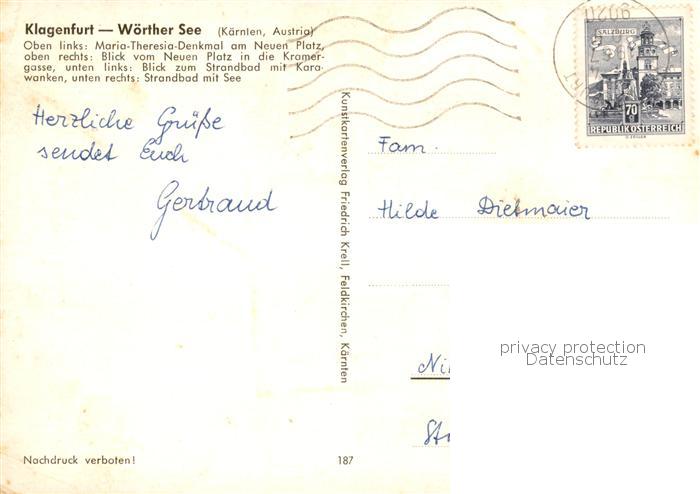 Klagenfurt — Wörther See (Kärnten, Austria)
Oben links: Maria-Theresia-Denkmal am Neuen Platz,
oben rechts: Blick vom Neuen Platz in die Kramer-
gasse, unten links: Blick zum Strandbad mit Kara-
wanken, unten rechts: Strandbad mit See
Herzliche Grüße
sendet Euch
Gertraud
Nachdruck verboten!
Kunstkartenverlag Friedrich Krell, Feldkirchen, Kärnten
187
9020
SALZBURG
70 g
REPUBLIK ÖSTERREICH
Fam.
Hilde Dietmaier
privacy protection
Datenschutz